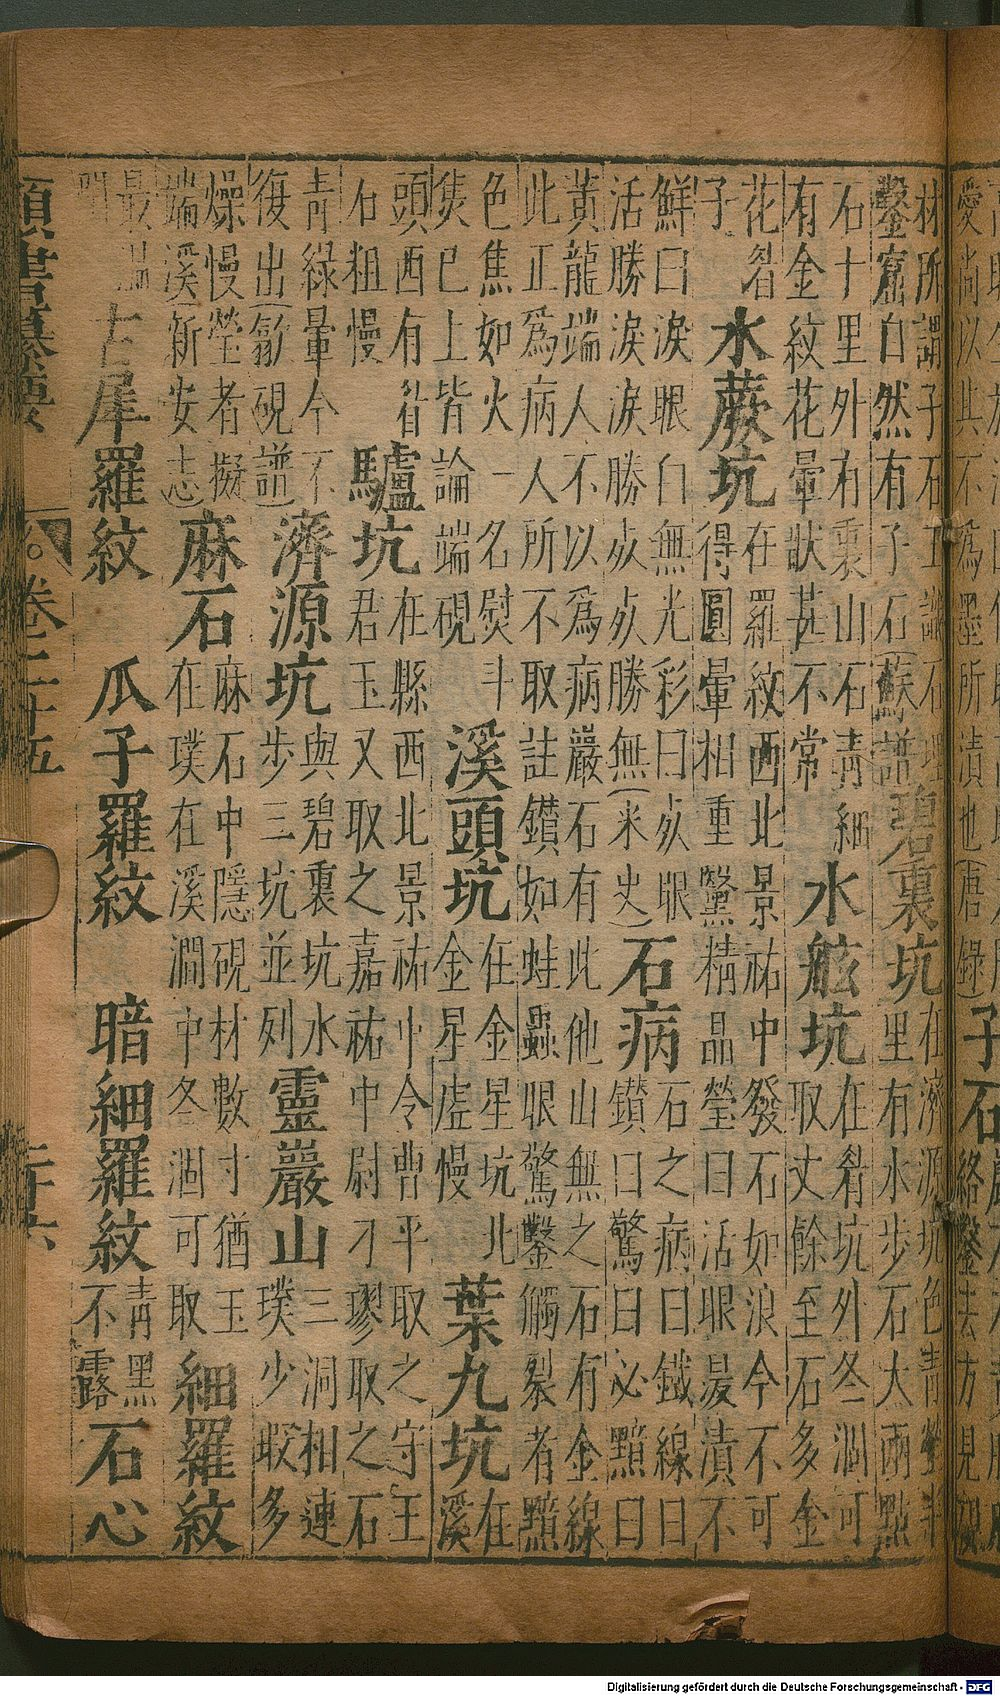 林所謂子石正謂石
鑿窟自然有子石(蘇譜
碧裏坑
在濟源坑色青
里有水步石大雨點
石十里外有裏山石青細
有金紋花暈狀甚不常
水舷坑
在眉坑外冬涸可
取丈餘至石多金
花眉
子
水蕨坑
在羅紋西北景祐中發石如浪今不可
得圓暈相重鑿精晶瑩曰活眼漫漬不
鮮曰淚眼白無光彩曰死眼
活勝淚淚勝死死勝無(米史)
石病
石之病曰鐵線曰
鑽曰驚曰必黯曰
黃龍端人不以為病巖石有此他山無之石有金線
此正為病人所不取註鑽如蛀蟲眼驚鑿觸裂者黯
色焦如火一名熨斗
焦已上皆論端硯
溪頭坑
在金星坑北
金星虛慢
葉九坑
在
溪
頭西有眉
石粗慢
驢坑
在縣西北景祐中令曹平取之守王
君玉又取之嘉祐中尉刁璆取之石
青綠暈今不
復出(歙硯譜)
濟源坑
與碧裏坑水
步三坑並列
靈巖山
三洞相連
璞少取多
燥慢瑩者擬
端溪新安志)
麻石
麻石中隱硯材數寸猶玉
在璞在溪澗中冬涸可取
細羅紋
最
古犀羅紋
瓜子羅紋
暗細羅紋
青黑
不露
石心
卷二十五
愛尚以其不為墨所漬也(唐錄)
子石
絡鑿去方見硯
Digitalisierung gefördert durch die Deutsche Forschungsgemeinschaft - DFG